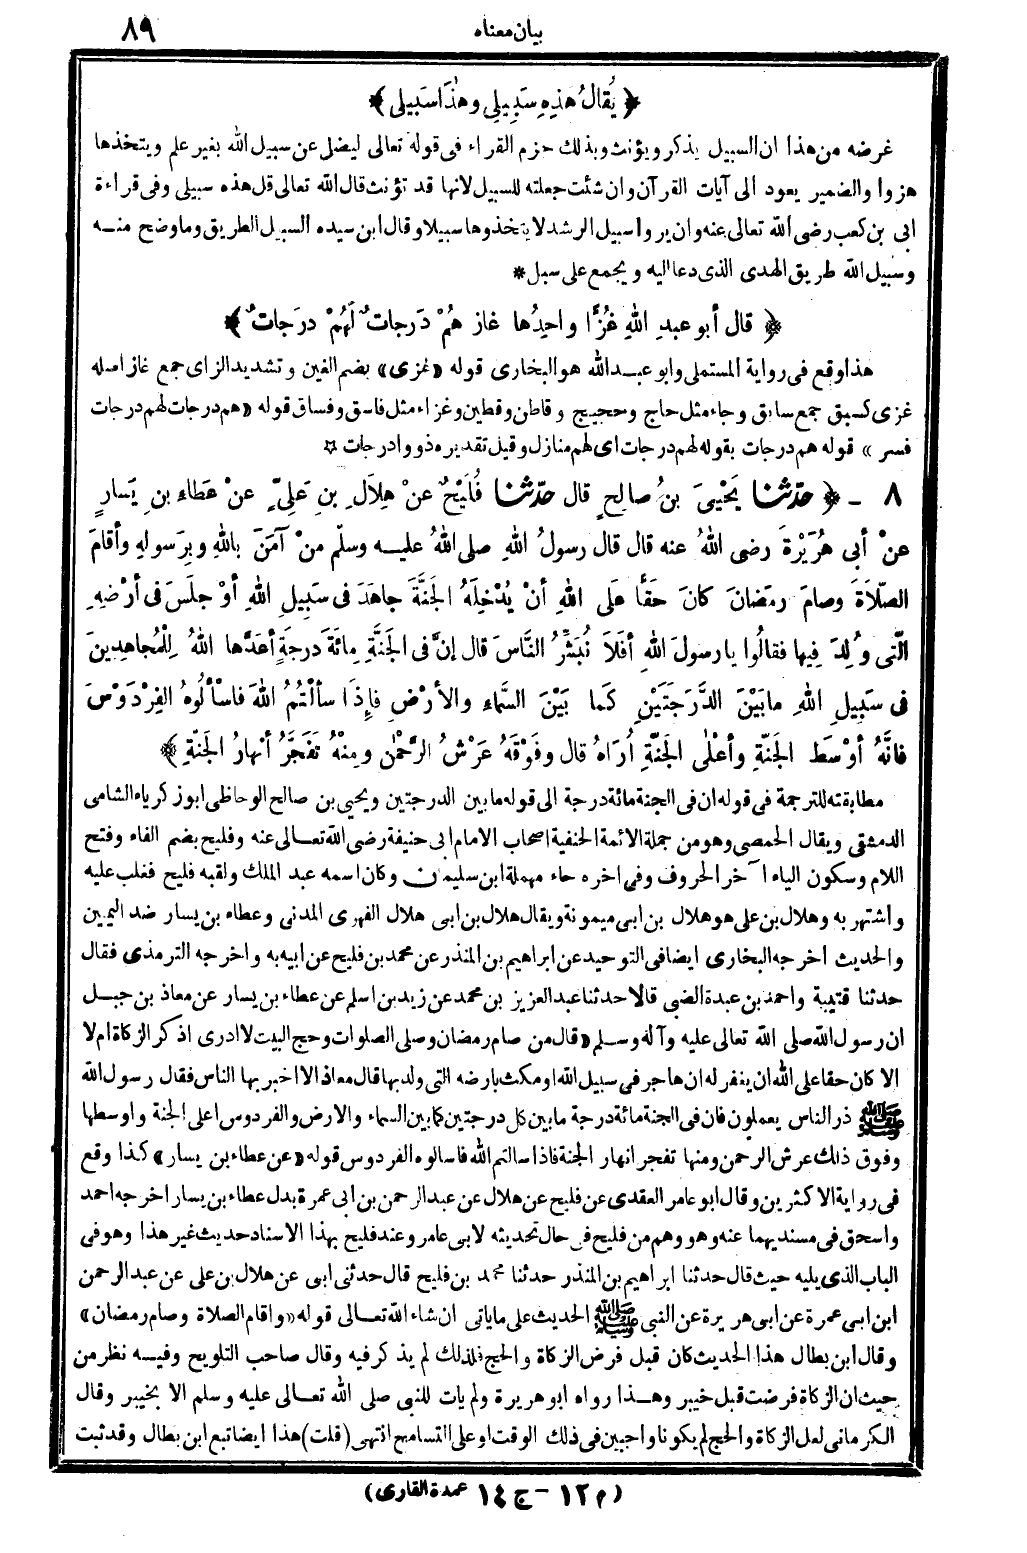 بيان معناه
٨٩
﴿ يُقالُ هٰذِهِ سَبِيلِي وهٰذَا سَبِيلِي ﴾
غرضه من هذا ان السبيل يذكر ويؤنث وبذلك جزم الفراء فى قوله تعالى ليضل عن سبيل الله بغير علم ويتخذها
هزوا والضمير يعود الى آيات القرآن وان شئت جعلته للسبيل لانها قد تؤنث قال الله تعالى قل هذه سبيلى وفى قراءة
ابى بن كعب رضى الله تعالى عنه وان يروا سبيل الرشد لا يتخذوها سبيلا وقال ابن سيده السبيل الطريق وما وضح منه
وسبيل الله طريق الهدى الذى دعا اليه ويجمع على سبل *
﴿ قال أبو عبدِ اللهِ غُزًّا واحِدُها غاز هُمْ دَرجات ٌ لَهُمْ درَجات ٌ ﴾
هذا وقع فى رواية المستملى وابو عبد الله هو البخارى قوله «غزى» بضم الغين وتشديد الزاى جمع غاز اصله
غزى كسبق جمع سابق وجاء مثل حاج وحجيج وقاطن وقطين وغزاء مثل فاسق وفساق قوله «هم درجات لهم درجات
فسر» قوله هم درجات بقوله لهم درجات اى لهم منازل وقيل تقديره ذووا درجات ☆
٨ - ﴿ حدّثنا يَحْيىَ بنُ صالِحٍ قال حدّثنا فُلَيْحٌ عنْ هِلاَلِ بنِ عَلِيٍّ عنْ عَطاءِ بنِ يَسارٍ
عنْ أبى هُرَيْرةَ رضى اللهُ عنه قال قال رسولُ اللهِ صلى اللهُ عليه وسلّم منْ آمَنَ باللهِ وبِرَسولهِ وأقامَ
الصّلاَةَ وصامَ رمَضانَ كانَ حَقاً علَى اللهِ أنْ يُدْخِلَهُ الجَنَّةَ جاهَدَ فى سَبِيلِ اللهِ أوْ جلَسَ فى أرْضِهِ
الّتى وُلِدَ فِيها فقالُوا يارسولَ اللهِ أفَلاَ نُبَشِّرُ النّاسَ قال إنَّ فى الجَنَّةِ مِائَةَ درجَةٍ أعَدَّها اللهُ لِلْمُجاهِدِينَ
فى سَبِيلِ اللهِ مابَيْنَ الدَّرَجَتَيْنِ كَما بَيْنَ السَّماءِ والأرْضِ فإِذَا سألْتُمُ اللهَ فاسْألُوهُ الفِرْدَوْسَ
فانَّهُ أوْسَط الجَنّةِ وأعْلٰى الجَنّةِ أُراهُ قال وفَوْقَهُ عَرْشُ الرَّحْمٰنِ ومِنْهُ تَفَجَّرُ أنْهارُ الجَنّةِ ﴾
مطابقته للترجمة فى قوله ان فى الجنة مائة درجة الى قوله ما بين الدرجتين ويحيى بن صالح الوحاظى ابو زكرياء الشامى
الدمشقى ويقال الحمصى وهو من جملة الائمة الحنفية اصحاب الامام ابى حنيفة رضى الله تعالى عنه وفليح بضم الفاء وفتح
اللام وسكون الياء آخر الحروف وفى اخره حاء مهملة ابن سليمان وكان اسمه عبد الملك ولقبه فليح فغلب عليه
واشتهر به وهلال بن على هو هلال بن ابى ميمونة ويقال هلال بن ابى هلال الفهرى المدنى وعطاء بن يسار ضد اليمين
والحديث اخرجه البخارى ايضا فى التوحيد عن ابراهيم بن المنذر عن محمد بن فليح عن ابيه به واخرجه الترمذى فقال
حدثنا قتيبة واحمد بن عبدة الضبى قالا حدثنا عبد العزيز بن محمد عن زيد بن اسلم عن عطاء بن يسار عن معاذ بن جبل
ان رسول الله صلى الله تعالى عليه وآله وسلم «قال من صام رمضان وصلى الصلوات وحج البيت لا ادرى اذكر الزكاة ام لا
الا كان حقا على الله ان يغفر له ان هاجر فى سبيل الله او مكث بارضه التى ولد بها قال معاذ الا اخبر بها الناس فقال رسول الله
ﷺ ذر الناس يعملون فان فى الجنة مائة درجة ما بين كل درجتين كما بين السماء والارض والفردوس اعلى الجنة واوسطها
وفوق ذلك عرش الرحمن ومنها تفجر انهار الجنة فاذا سالتم الله فاسالوه الفردوس قوله «عن عطاء بن يسار» كذا وقع
فى رواية الاكثرين وقال ابو عامر العقدى عن فليح عن هلال عن عبد الرحمن بن ابى عمرة بدل عطاء بن يسار اخرجه احمد
واسحق فى مسنديهما عنه وهو وهم من فليح فى حال تحديثه لابى عامر وعند فليح بهذا الاسناد حديث غير هذا وهو فى
الباب الذى يليه حيث قال حدثنا ابراهيم بن المنذر حدثنا محمد بن فليح قال حدثنى ابى عن هلال بن على عن عبد الرحمن
ابن ابى عمرة عن ابى هريرة عن النبى ﷺ الحديث على ما ياتى ان شاء الله تعالى قوله «واقام الصلاة وصام رمضان»
وقال ابن بطال هذا الحديث كان قبل فرض الزكاة والحج فلذلك لم يذكر فيه وقال صاحب التلويح وفيه نظر من
حيث ان الزكاة فرضت قبل خيبر وهذا رواه ابو هريرة ولم يات للنبى صلى الله تعالى عليه وسلم الا بخيبر وقال
الكرمانى لعل الزكاة والحج لم يكونا واجبين فى ذلك الوقت او على التسامح انتهى (قلت) هذا ايضا تبع ابن بطال وقد ثبت
(م ١٢ - ج ١٤ عمدة القارى)